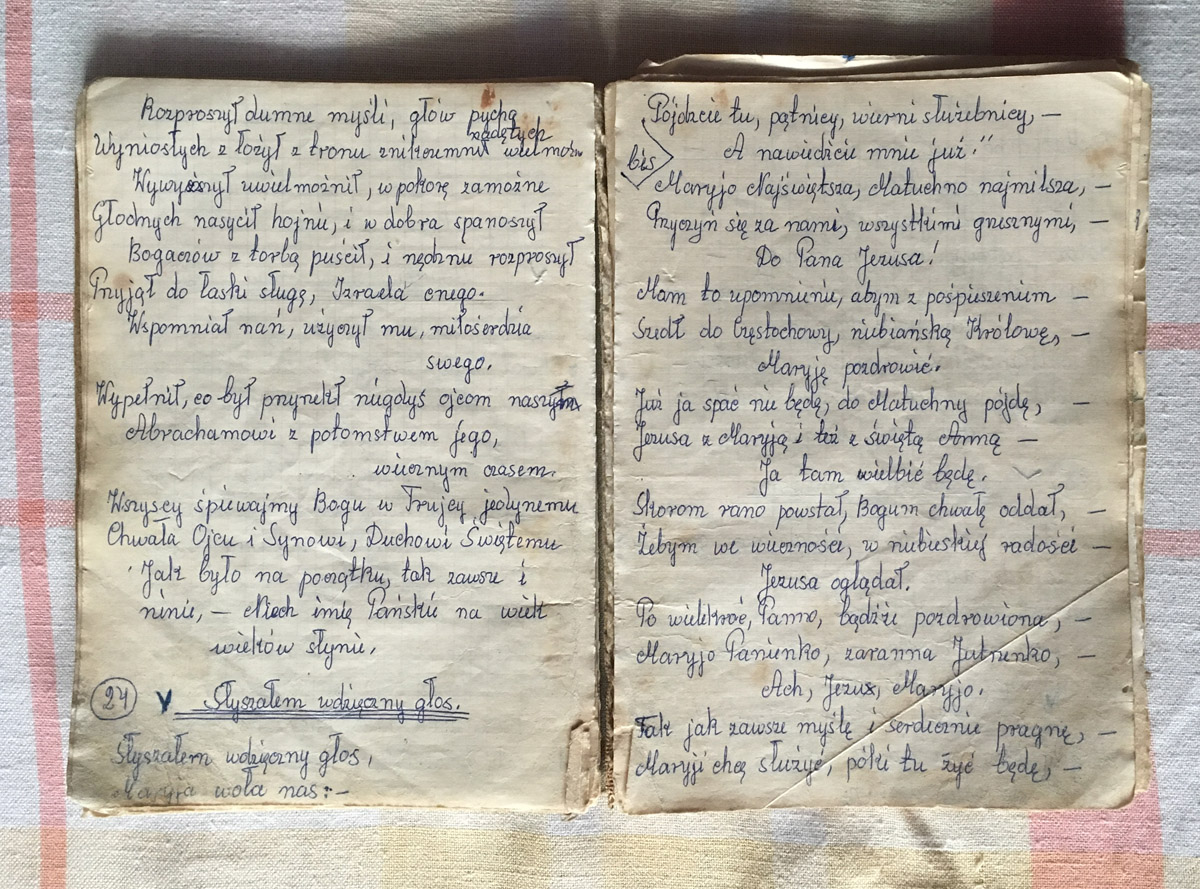 Rozproszył dumne myśli, głów pychą
nadętych
Wyniosłych z łożył z tronu znikczemnił wielmożn
Wywyższył uwielmożnił, w pokorę zamożne
Głodnych nasycił hojnie, i w dobra spanoszył
Bogaczów z torbą puścił, i nędznie rozproszył
Przyjął do łaski sługę, Izraela cnego.
Wspomniał nań, użyczył mu, miłosierdzia
swego.
Wypełnił, co był przyrzekł niegdyś ojcom naszym
Abrachamowi z potomstwem jego,
wiecznym czasem.
Wszyscy śpiewajmy Bogu w Trujcy jedynemu
Chwała Ojcu i Synowi, Duchowi Świętemu
Jak było na początku, tak zawsze i
ninie, – Niech imię Pańskie na wiek
wieków słynie.
24 V Słyszałem wdzięczny głos.
Słyszałem wdzięczny głos,
Maryja woła nas: –
Pójdźcie tu, pątnicy, wierni służebnicy, –
bis
A nawiedźcie mnie już!"
Maryjo Najświętsza, Matuchno najmilsza, –
Przyczyń się za nami, wszystkimi grzesznymi, –
Do Pana Jezusa!
Mam to upomnienie, abym z pośpieszeniem –
Szedł do Częstochowy, niebiańską Królowę, –
Maryję pozdrowić.
Już ja spać nie będę, do Matuchny pójdę, –
Jezusa z Maryją i też z świętą Anną –
Ja tam wielbić będę.
Skorom rano powstał, Bogum chwałę oddał, –
Żebym we wieczności, w niebieskiej radości –
Jezusa oglądał.
Po wielekroć, Panno, bądźże pozdrowiona, –
Maryjo Panienko, zaranna Jutrzenko, –
Ach, Jezus, Maryjo.
Tak jak zawsze myślę i serdecznie pragnę, –
Maryji chcę służyć, póki tu żyć będę, –